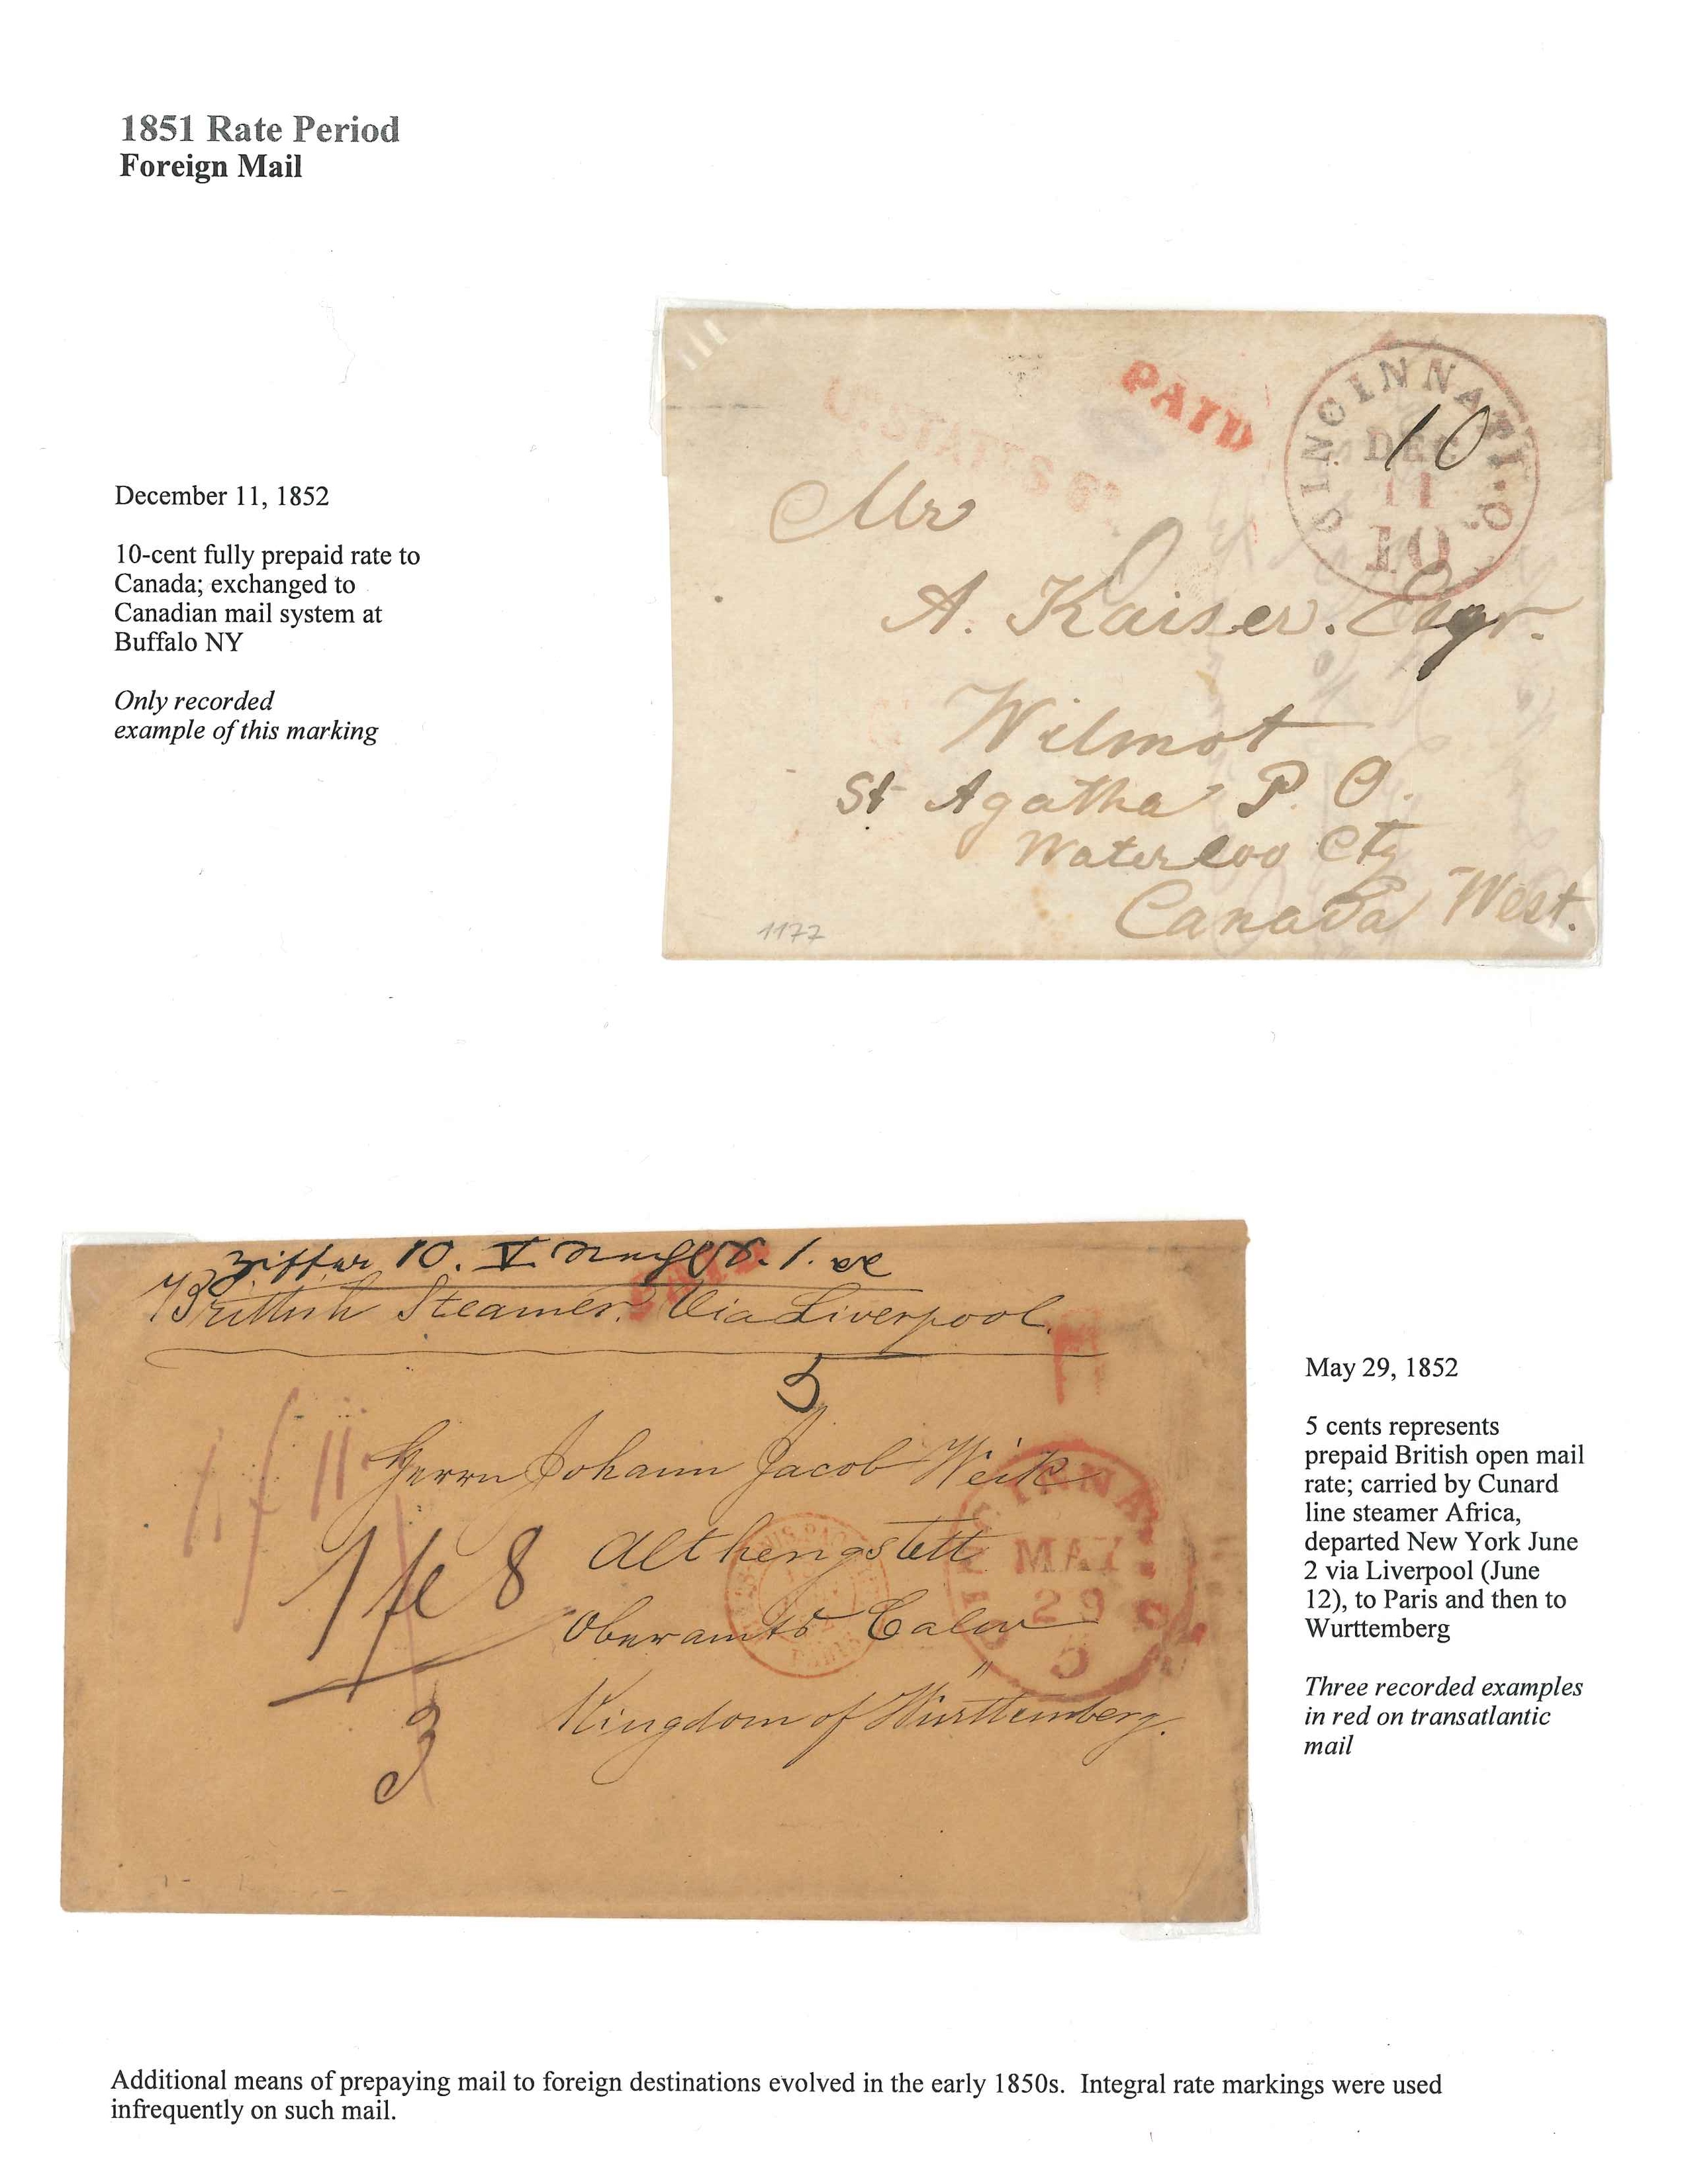 1851 Rate Period
Foreign Mail
December 11, 1852
10-cent fully prepaid rate to
Canada; exchanged to
Canadian mail system at
Buffalo NY
Only recorded
example of this marking
U. STATES
PAID
CINCINNATI. O.
DEC
11
10
10
Mr
A. Kaiser. Esqr.
Wilmot
St Agatha P. O.
Waterloo Cty
Canada West.
1177
10. V.
PAID
Brittish Steamer. Via Liverpool.
5
Herrn Johann Jacob Weik
Althengstett
Oberamts Calw
Kingdom of Württemberg.
MAY
29
5
PARIS
8
3
May 29, 1852
5 cents represents
prepaid British open mail
rate; carried by Cunard
line steamer Africa,
departed New York June
2 via Liverpool (June
12), to Paris and then to
Wurttemberg
Three recorded examples
in red on transatlantic
mail
Additional means of prepaying mail to foreign destinations evolved in the early 1850s. Integral rate markings were used
infrequently on such mail.